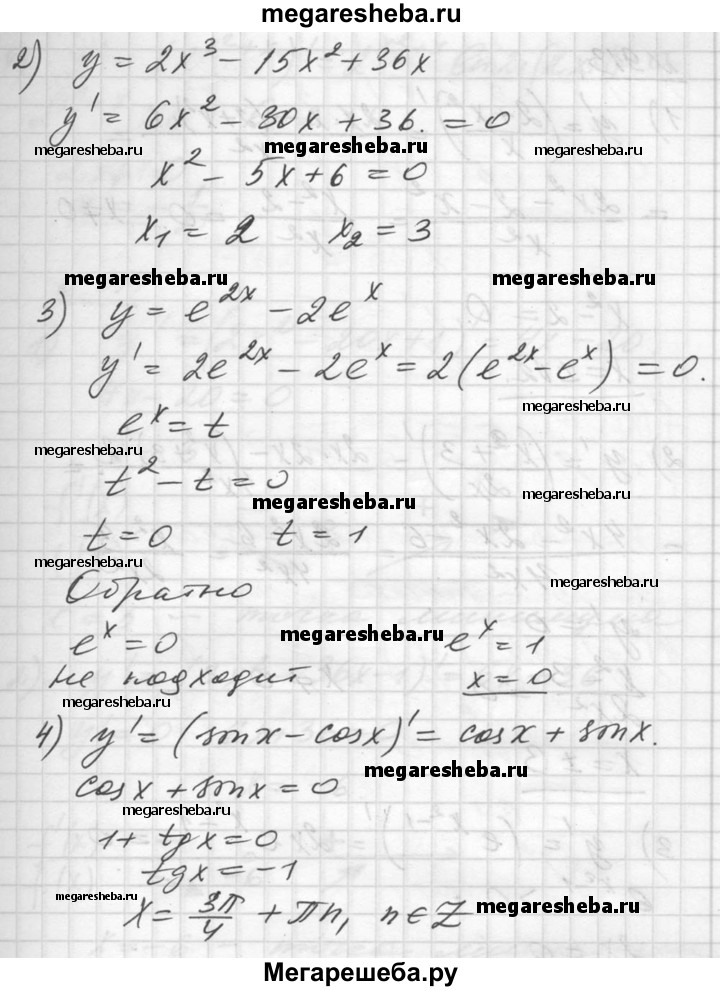 megaresheba.ru
2) y = 2x³ − 15x² + 36x
y' = 6x² − 30x + 36. = 0
megaresheba.ru megaresheba.ru megaresheba.ru
x² − 5x + 6 = 0
x₁ = 2 x₂ = 3
megaresheba.ru megaresheba.ru
3) y = e²ˣ − 2eˣ
y' = 2e²ˣ − 2eˣ = 2(e²ˣ − eˣ) = 0.
megaresheba.ru
eˣ = t
megaresheba.ru
t² − t = 0
megaresheba.ru megaresheba.ru
t = 0 t = 1
megaresheba.ru megaresheba.ru
Обратно
eˣ = 0 megaresheba.ru eˣ = 1
не подходит x = 0
megaresheba.ru
4) y' = (sinx − cosx)' = cosx + sinx.
megaresheba.ru
cosx + sinx = 0
megaresheba.ru
1 + tgx = 0
tgx = −1
x = 3π/4 + πn, n ∈ Z megaresheba.ru
Мегарешеба.ру